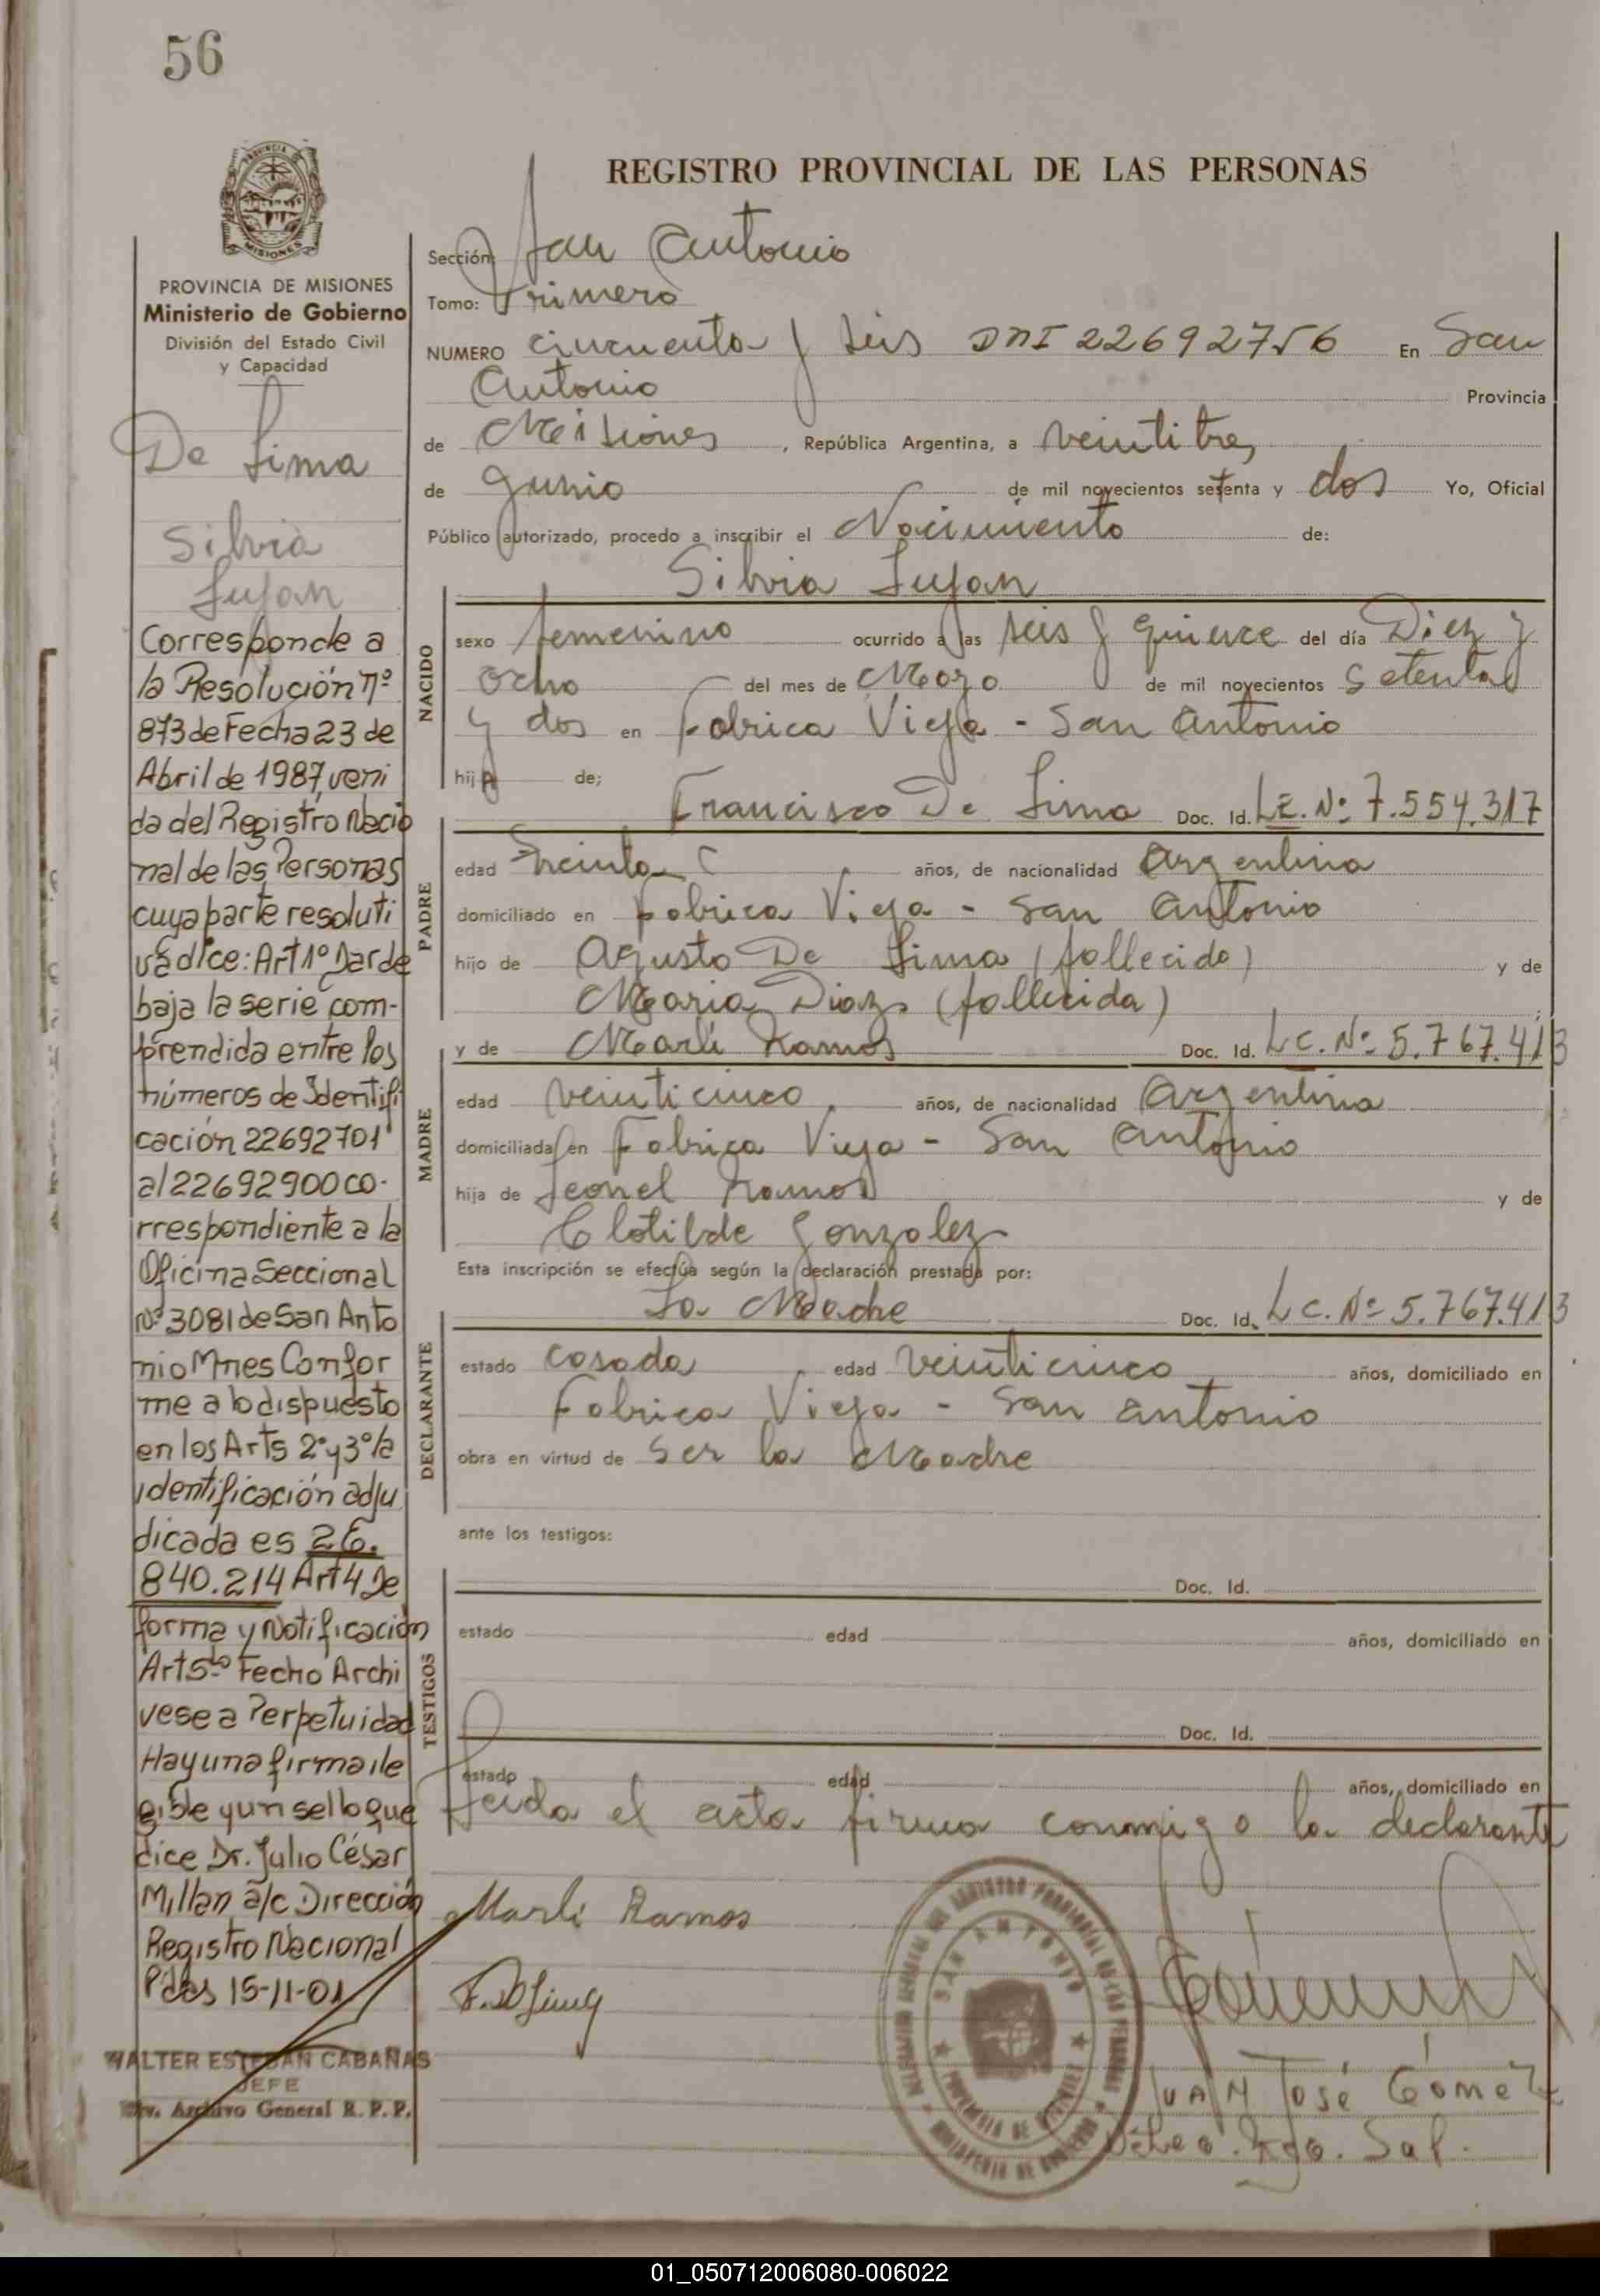 56
REGISTRO PROVINCIAL DE LAS PERSONAS
PROVINCIA DE MISIONES
Ministerio de Gobierno
División del Estado Civil
y Capacidad
De Lima
Silvia
Lujan
Corresponde a
la Resolución nº
873 de Fecha 23 de
Abril de 1987, veni
da del Registro Nacio
nal de las Personas
cuya parte resoluti
va dice: Art 1º Dar de
baja la serie com-
prendida entre los
números de Identifi
cación 22692701
al 22692900 co-
rrespondiente a la
Oficina Seccional
Nº 3081 de San Anto
nio Mnes Confor
me a lo dispuesto
en los Arts 2º y 3º la
identificación adju
dicada es 26.
840.214 Art 4 De
forma y Notificación
Art 5to Fecho Archi
vese a Perpetuidad
Hay una firma ile
gible y un sello que
dice Dr. Julio César
Millan a/c Dirección
Registro Nacional
Pdas 15-11-01
WALTER ESTEBAN CABAÑAS
JEFE
Div. Archivo General R. P. P.
Sección: San Antonio
Tomo: Primero
NUMERO cincuenta y seis DNI 22692756 En San
Antonio Provincia
de Misiones, República Argentina, a veintitres
de Junio de mil novecientos setenta y dos Yo, Oficial
Público autorizado, procedo a inscribir el Nacimiento de:
Silvia Lujan
NACIDO
sexo femenino ocurrido a las seis y quince del día Diez y
ocho del mes de Mayo de mil novecientos setenta
y dos en Fabrica Vieja - San Antonio
hija de;
Francisco De Lima Doc. Id. L.E. Nº 7.554.317
PADRE
edad treinta años, de nacionalidad Argentina
domiciliado en Fabrica Vieja - San Antonio
hijo de Agusto De Lima (fallecido) y de
Maria Diaz (fallecida);
y de Marli Ramos Doc. Id. L.C. Nº 5.767.413
MADRE
edad veinticinco años, de nacionalidad Argentina
domiciliada en Fabrica Vieja - San Antonio
hija de Leonel Ramos y de
Clotilde Gonzalez
Esta inscripción se efectúa según la declaración prestada por:
La Madre Doc. Id. L.C. Nº 5.767.413
DECLARANTE
estado casada edad veinticinco años, domiciliado en
Fabrica Vieja - San Antonio
obra en virtud de ser la Madre
ante los testigos:
Doc. Id.
TESTIGOS
estado edad años, domiciliado en
Doc. Id.
estado edad años, domiciliado en
Leida el acta firma conmigo la declarante
Marli Ramos
SAN ANTONIO
PROVINCIA DE MISIONES
MINISTERIO DE GOBIERNO
JUAN José Gómez
01_050712006080-006022